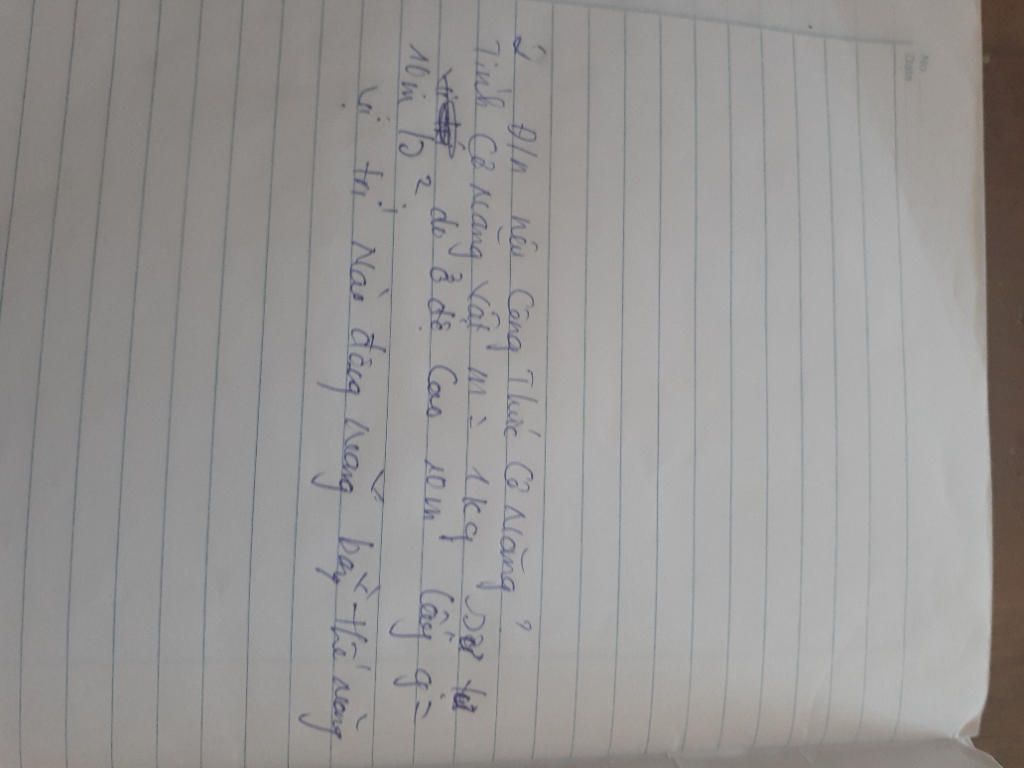 No.
Date
2 Đ/n nêu Công Thức Cơ Năng?
Tính Cơ năng vật m = 1kg rơi
do ở độ Cao 10m lấy g =
10m/s². 
Vị trí Nào động năng bằng thế năng